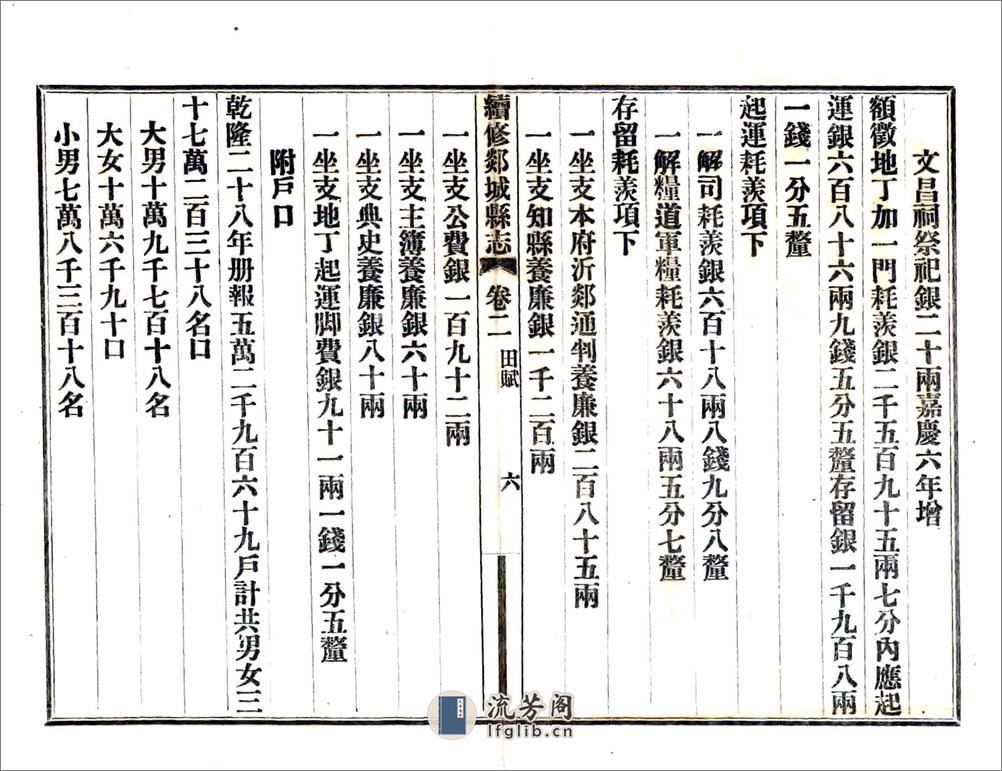 文昌祠祭祀銀二十兩嘉慶六年增
額徵地丁加一門耗羨銀二千五百九十五兩七分內應起
運銀六百八十六兩九錢五分五釐存留銀一千九百八兩
一錢一分五釐
起運耗羨項下
一解司耗羨銀六百十八兩八錢九分八釐
一解糧道軍糧耗羨銀六十八兩五分七釐
存留耗羨項下
一坐支本府沂郯通判養廉銀二百八十五兩
一坐支知縣養廉銀一千二百兩
續修郯城縣志 卷二 田賦 六
一坐支公費銀一百九十二兩
一坐支主簿養廉銀六十兩
一坐支典史養廉銀八十兩
一坐支地丁起運脚費銀九十一兩一錢一分五釐
附戶口
乾隆二十八年册報五萬二千九百六十九戶計共男女三
十七萬二百三十八名口
大男十萬九千七百十八名
大女十萬六千九十口
小男七萬八千三百十八名
流芳阁
lfglib.cn